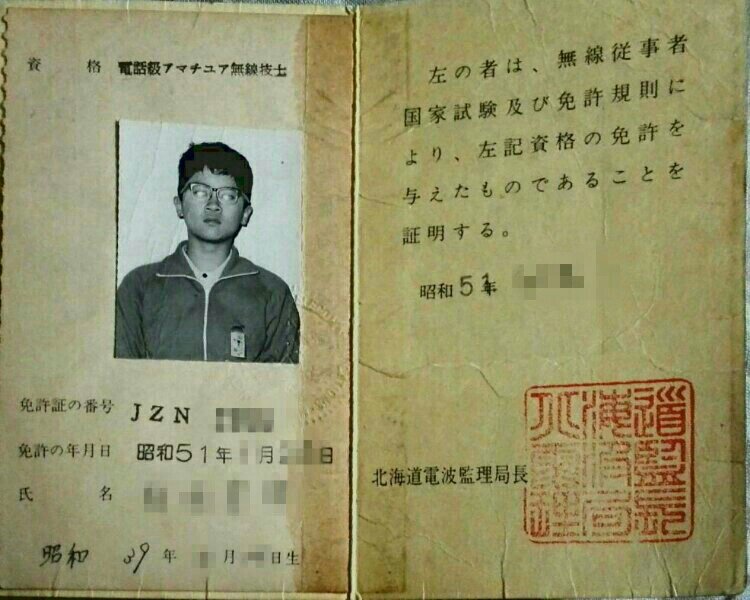 資格 電話級アマチユア無線技士
免許証の番号 JZN
免許の年月日 昭和51年 月 日
氏名
昭和 39年 月 日生
左の者は、無線従事者
国家試験及び免許規則に
より、左記資格の免許を
与えたものであることを
証明する。
昭和51年
北海道電波監理局長